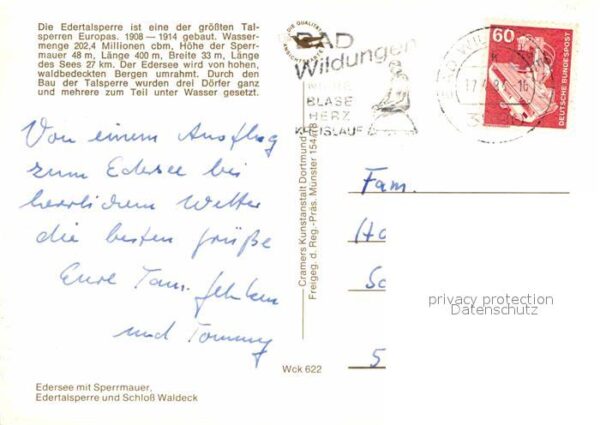 Die Edertalsperre ist eine der größten Tal-
sperren Europas. 1908 — 1914 gebaut. Wasser-
menge 202,4 Millionen cbm, Höhe der Sperr-
mauer 48 m, Länge 400 m, Breite 33 m, Länge
des Sees 27 km. Der Edersee wird von hohen,
waldbedeckten Bergen umrahmt. Durch den
Bau der Talsperre wurden drei Dörfer ganz
und mehrere zum Teil unter Wasser gesetzt.
Von einem Ausflug
zum Edersee bei
herrlichem Wetter
die besten Grüße
Eure Fam.
und Tommy
Edersee mit Sperrmauer,
Edertalsperre und Schloß Waldeck
Cramers Kunstanstalt Dortmund
Freigeg. d. Reg.-Präs. Münster
Wck 622
BAD
Wildungen
BLASE
HERZ
KREISLAUF
60
DEUTSCHE BUNDESPOST
Fam.
Ho
Sc
5
privacy protection
Datenschutz